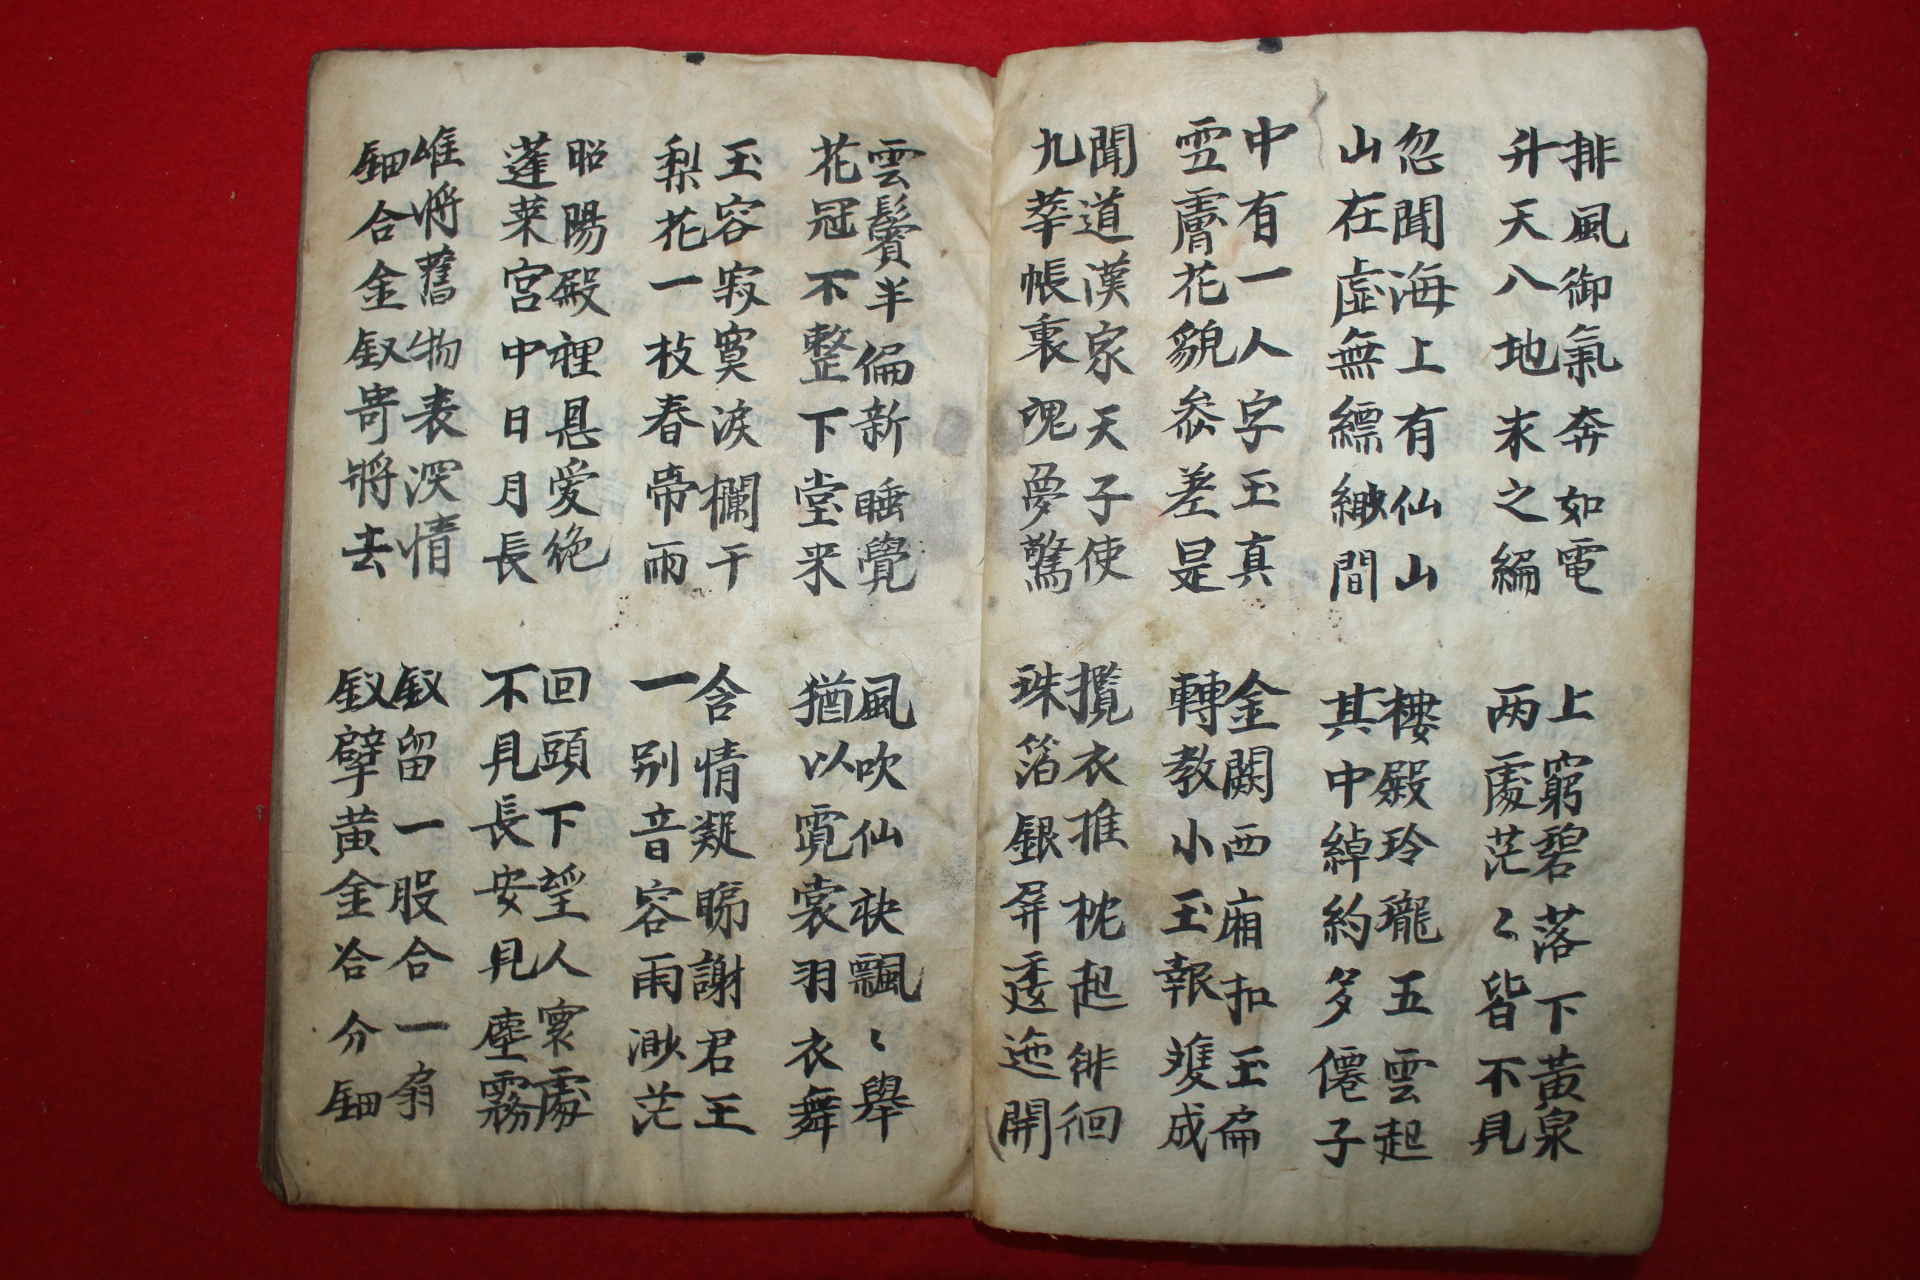 排風御氣奔如電
升天八地求之編
上窮碧落下黃泉
两處茫〻皆不見
忽聞海上有仙山
山在虛無縹緲間
樓殿玲瓏五雲起
其中綽約多僊子
中有一人字玉真
雪膚花貌叅差是
金闕西廂扣玉扁
轉教小玉報雙成
聞道漢家天子使
九華帳裏魂夢驚
攬衣推枕起徘徊
珠箔銀屏逶迤開
雲鬢半偏新睡覺
花冠不整下堂来
風吹仙袂飄〻舉
猶以霓裳羽衣舞
玉容寂寞淚欄干
梨花一枝春帶雨
含情凝睇謝君王
一别音容雨渺茫
昭陽殿裡恩愛絶
蓬萊宮中日月長
回頭下望人寰處
不見長安見塵霧
唯將舊物表深情
鈿合金釵寄將去
釵留一股合一扇
釵擘黃金合分鈿